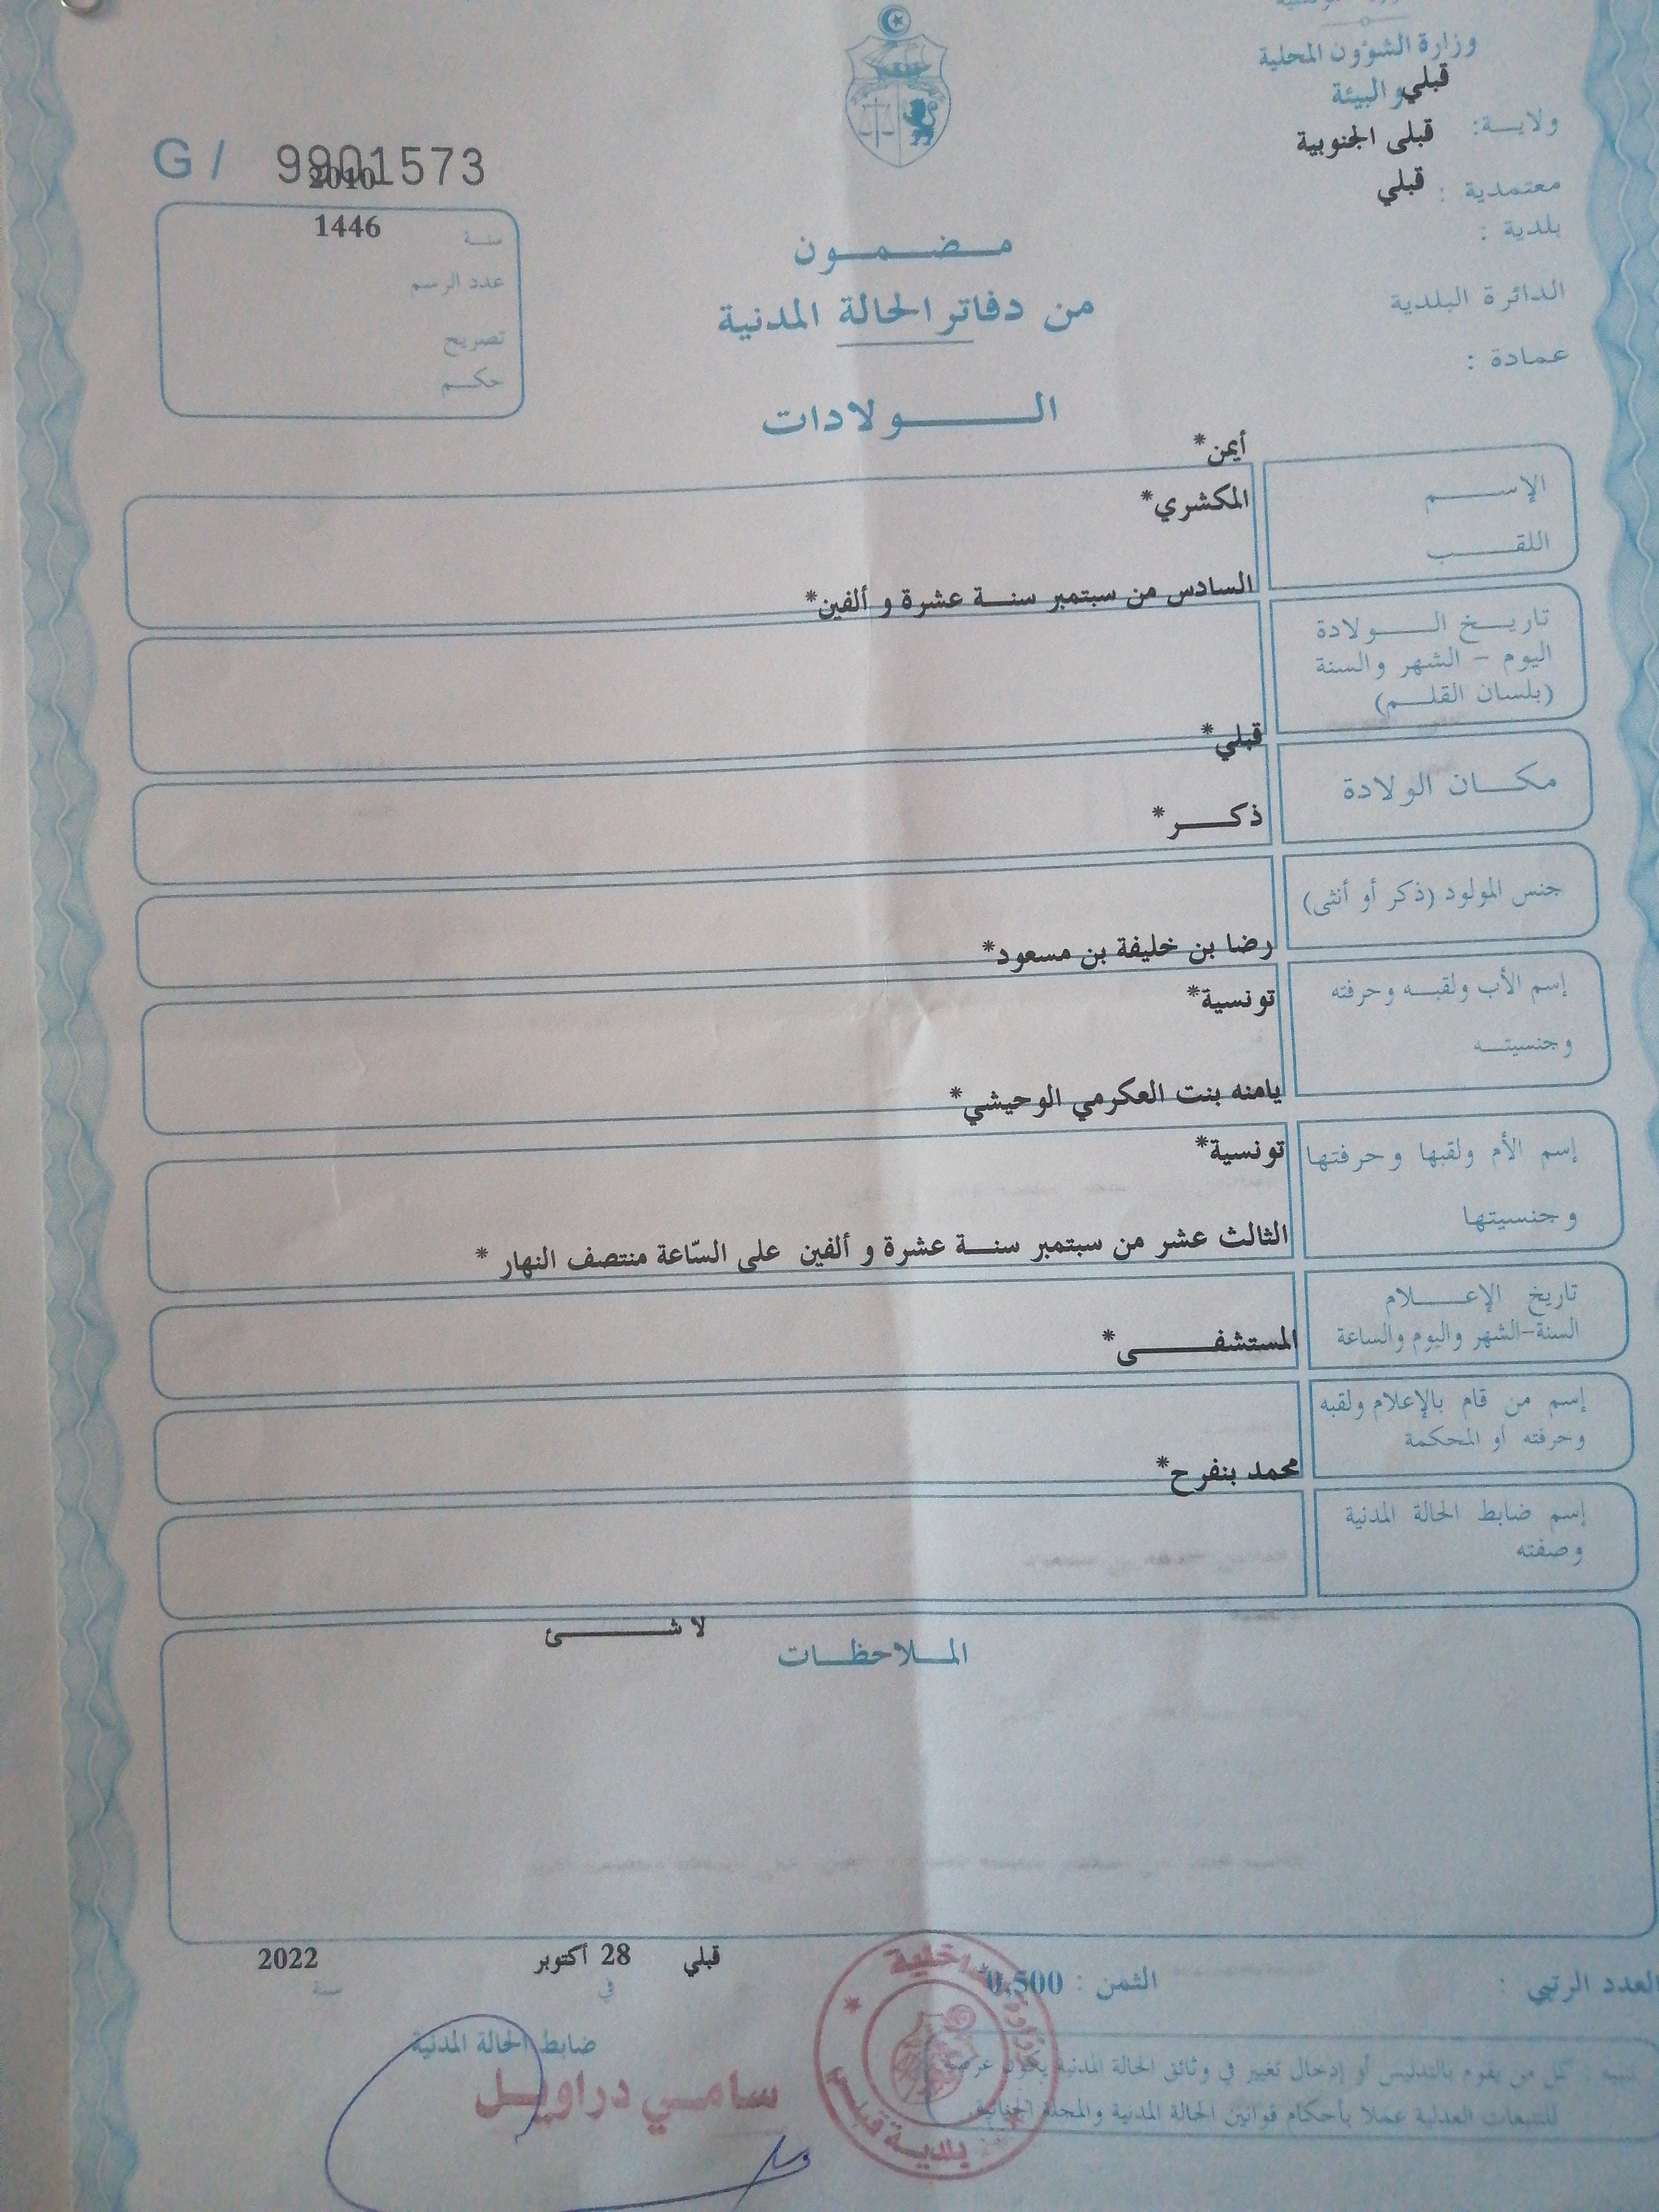 وزارة الشؤون المحلية
والبيئة
قبلي
ولايــة:
قبلى الجنوبية
معتمدية :
قبلي
بلدية :
الدائرة البلدية
عمادة :
G / 9901573
2010
1446
سنـة
عدد الرسم
تصريح
حكــم
مـــضـــمـــون
من دفاتر الحالة المدنية
الــــــولادات
أيمن*
الإســـــم
المكشري*
اللقـــــب
السادس من سبتمبر سنـــة عشرة و ألفين*
تاريـــخ الـــــولادة
اليوم - الشهر والسنة
(بلسان القلـــم)
قبلي*
مكـــان الولادة
ذكـــــر*
جنس المولود (ذكر أو أنثى)
رضا بن خليفة بن مسعود*
إسم الأب ولقبـــه وحرفته
تونسية*
وجنسيتـــه
يامنه بنت العكرمي الوحيشي*
إسم الأم ولقبها وحرفتها
تونسية*
وجنسيتها
الثالث عشر من سبتمبر سنـــة عشرة و ألفين على السّاعة منتصف النهار *
تاريخ الإعـــــلام
السنة-الشهر واليوم والساعة
المستشفـــــــى*
إسم من قام بالإعلام ولقبه
وحرفته أو المحكمة
محمد بنفرح*
إسم ضابط الحالة المدنية
وصفته
لا شـــــــئ
المـــلاحظـــات
قبلي 28 أكتوبر 2022
في سنـــة
العدد الرتبي :
الثمن : 0,500
ضابط الحالة المدنية
سامـــي دراويـــل
تنبيه : كل من يقوم بالتدليس أو إدخال تغيير في وثائق الحالة المدنية يكون عرضة
للتتبعات العدلية عملا بأحكام قوانين الحالة المدنية والمجلة الجنائية.
وزارة الداخلية
بلدية قبلي